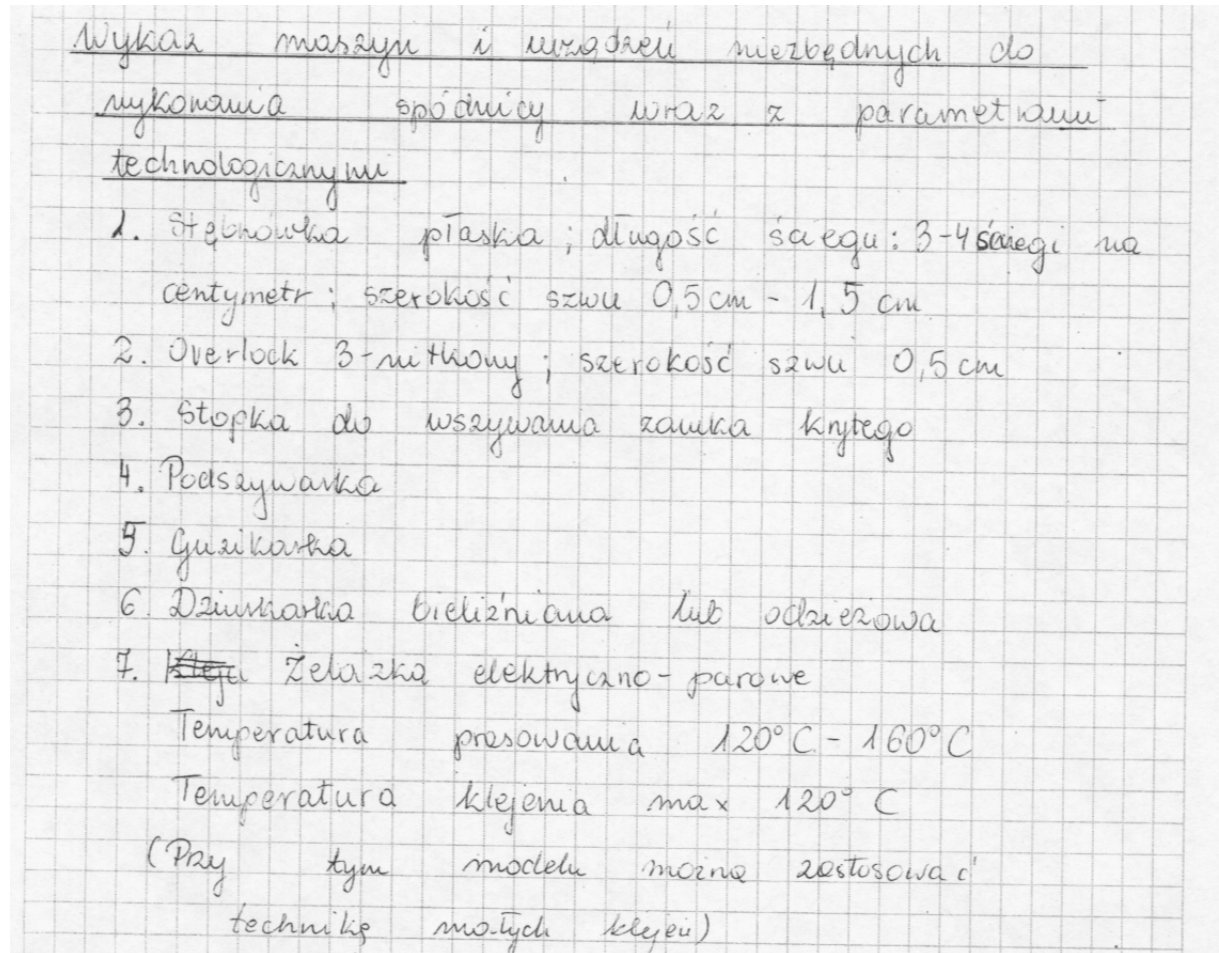 Wykaz maszyn i urządzeń niezbędnych do
wykonania spódnicy wraz z parametrami
technologicznymi
1. Stębnówka płaska; długość ściegu: 3-4 ściegi na
centymetr; szerokość szwu 0,5 cm - 1,5 cm
2. Overlock 3-nitkowy; szerokość szwu 0,5 cm
3. Stopka do wszywania zamka krytego
4. Podszywarka
5. Guzikarka
6. Dziurkarka bieliźniana lub odzieżowa
7. Żelazka elektryczno-parowe
Temperatura prasowania 120°C - 160°C
Temperatura klejenia max 120°C
(Przy tym modelu można zastosować
technikę małych klejeń)